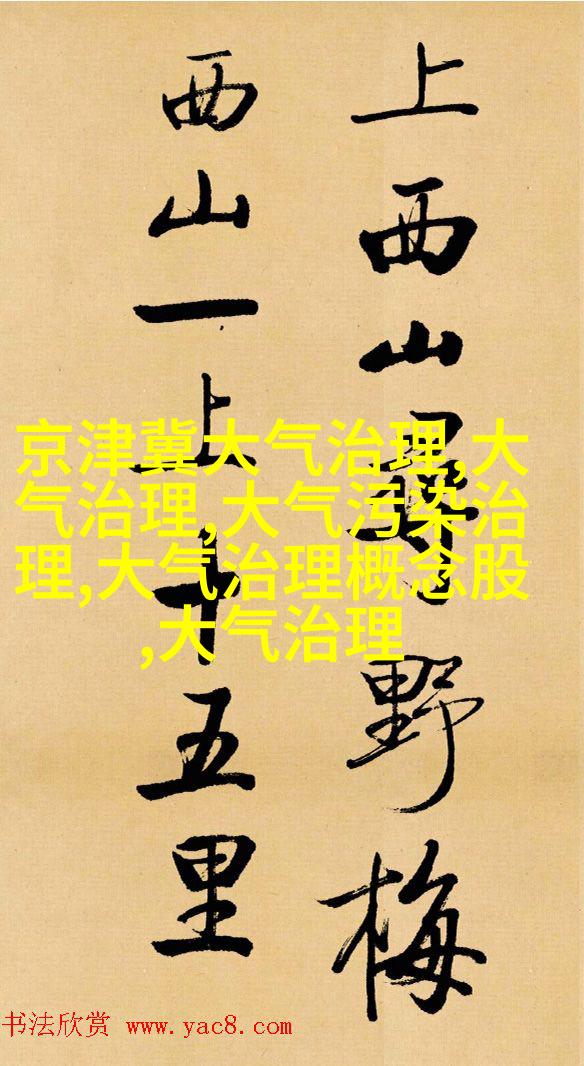 上西山尋野梅
西山一上十五里
京津冀大气治理,大
气治理,大气污染治
理,大气治理概念股
,大气治理
书法欣赏 www.yac8.com